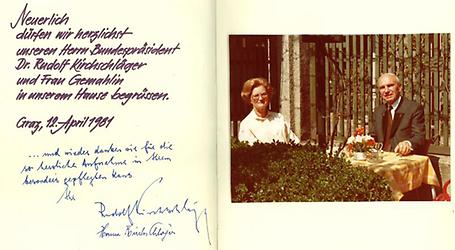 Neuerlich
dürfen wir herzlichst
unseren Herrn Bundespräsident
Dr. Rudolf Kirchschläger
und Frau Gemahlin
in unserem Hause begrüssen.
Graz, 12. April 1981
... und wieder danken wir für die
so herzliche Aufnahme in Ihrem
besonders gepflegten Haus
Ihr
Rudolf Kirchschläger
Kirchschläger